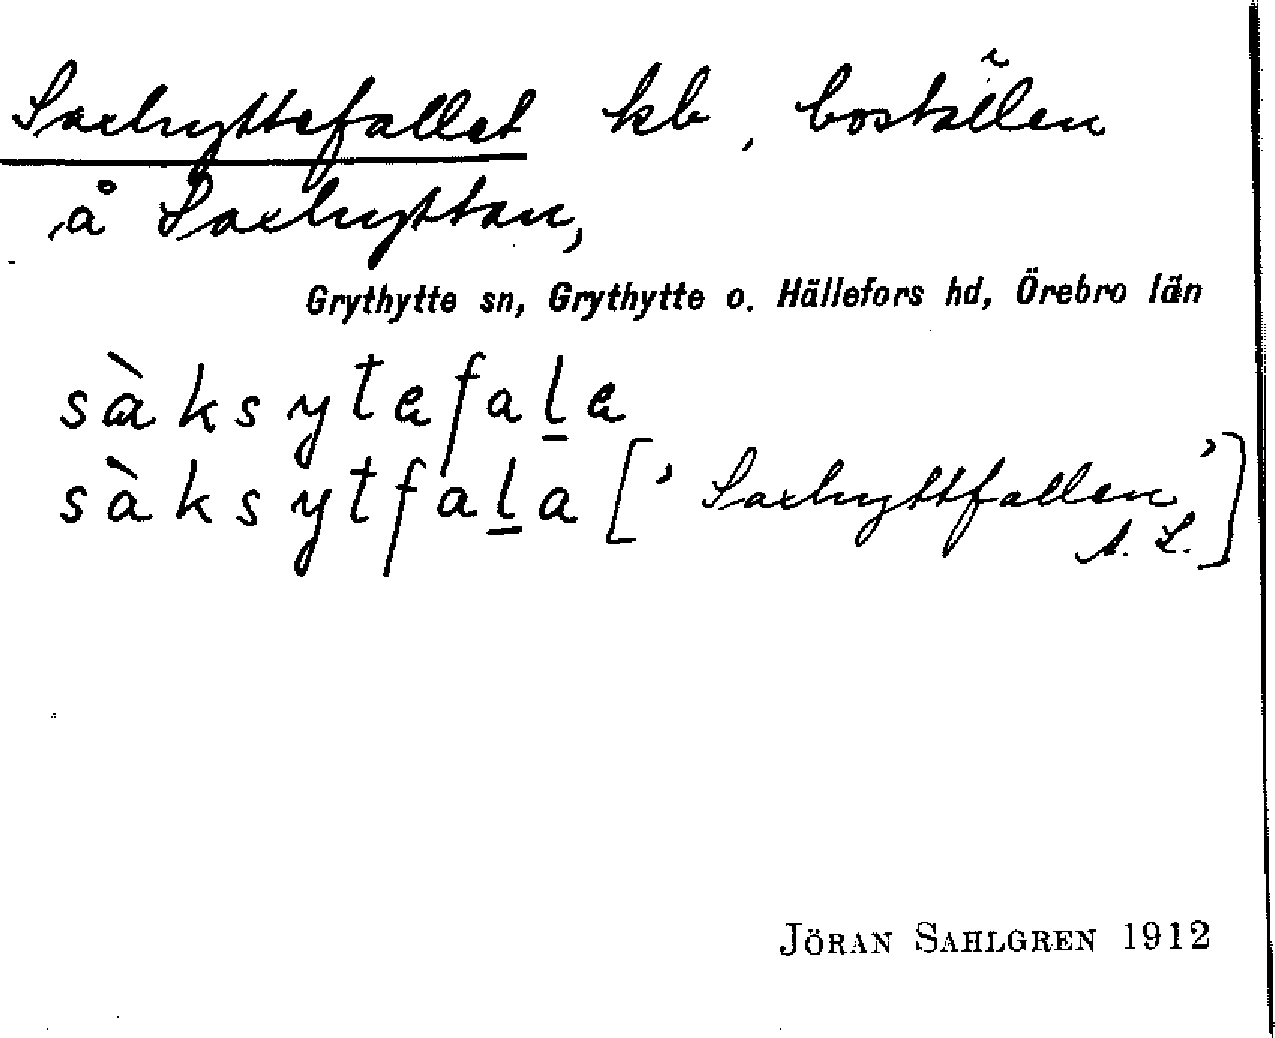 Saxhyttefallet kb, boställen
å Saxhyttan,
Grythytte sn, Grythytte o. Hällefors hd, Örebro län
sàksytefaḻe
sàksytfaḻa [' Saxhyttfallen '
A. L.]
JÖRAN SAHLGREN 1912